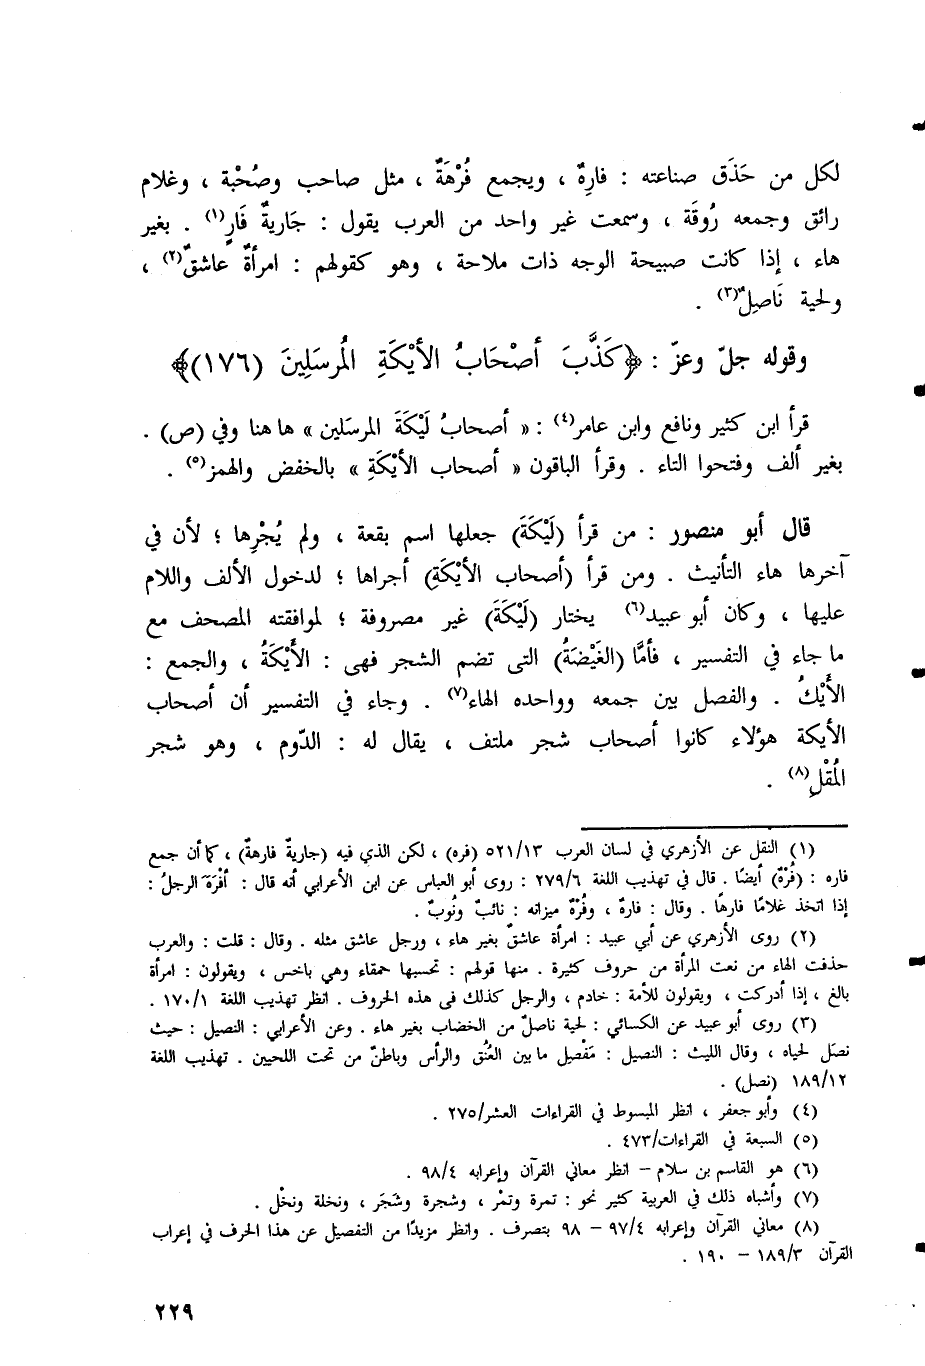 لكل من حَذَق صناعته : فارِهٌ ، ويجمع فُرْهَةٌ ، مثل صاحب وصُحْبة ، وغلام
رائق وجمعه رُوقَة ، وسمعت غير واحد من العرب يقول : جَاريةٌ فَارٍ(١) . بغير
هاء ، إذا كانت صبيحة الوجه ذات ملاحة ، وهو كقولهم : امرأةٌ عاشقٌ(٢) ،
ولحية نَاصِلٌ(٣) .
وقوله جلّ وعزّ : ﴿كَذَّبَ أصْحَابُ الأيْكَةِ المُرسَلِينَ (١٧٦)﴾
قرأ ابن كثير ونافع وابن عامر(٤) : « أصحابُ لَيْكَةَ المرسَلين » ها هنا وفي (ص) .
بغير ألف وفتحوا التاء . وقرأ الباقون « أصحاب الأيْكَةِ » بالخفض والهمز(٥) .
قال أبو منصور : من قرأ (لَيْكَةَ) جعلها اسم بقعة ، ولم يُجْرِها ؛ لأن في
آخرها هاء التأنيث . ومن قرأ (أصحاب الأيْكَةِ) أجراها ؛ لدخول الألف واللام
عليها ، وكان أبو عبيد(٦) يختار (لَيْكَةَ) غير مصروفة ؛ لموافقته المصحف مع
ما جاء في التفسير ، فأمَّا (الغَيْضَةُ) التى تضم الشجر فهى : الأَيْكَةُ ، والجمع :
الأَيْكُ . والفصل بين جمعه وواحده الهاء(٧) . وجاء في التفسير أن أصحاب
الأيكة هؤلاء كانوا أصحاب شجر ملتف ، يقال له : الدّوم ، وهو شجر
المُقْلِ(٨) .
(١) النقل عن الأزهري في لسان العرب ٥٢١/١٣ (فره) ، لكن الذي فيه (جاريةٌ فارهةٌ) ، كما أن جمع
فاره : (فُرْهٌ) أيضًا . قال في تهذيب اللغة ٢٧٩/٦ : روى أبو العباس عن ابن الأعرابي أنه قال : أفْرَهَ الرجلُ :
إذا اتخذ غلامًا فارهًا . وقال : فارهٌ ، وفُرْهٌ ميزانه : نائبٌ ونُوبٌ .
(٢) روى الأزهري عن أبي عبيد : امرأة عاشقٌ بغير هاء ، ورجل عاشق مثله . وقال : قلت : والعرب
حذفت الهاء من نعت المرأة من حروف كثيرة . منها قولهم : تحسبها حمقاء وهي باخس ، ويقولون : امرأة
بالغ ، إذا أدركت ، ويقولون للأمة : خادم ، والرجل كذلك فى هذه الحروف . انظر تهذيب اللغة ١٧٠/١ .
(٣) روى أبو عبيد عن الكسائي : لحية ناصلٌ من الخضاب بغير هاء . وعن الأعرابي : النصيل : حيث
نصَل لحياه ، وقال الليث : النصيل : مَفْصِل ما بين العُنُق والرأس وباطنٌ من تحت اللحيين . تهذيب اللغة
١٨٩/١٢ (نصل) .
(٤) وأبو جعفر ، انظر المبسوط في القراءات العشر/٢٧٥ .
(٥) السبعة في القراءات/٤٧٣ .
(٦) هو القاسم بن سلام – انظر معاني القرآن وإعرابه ٩٨/٤ .
(٧) وأشباه ذلك في العربية كثير نحو : تمرة وتمْر ، وشجرة وشَجَر ، ونخلة ونخْل .
(٨) معاني القرآن وإعرابه ٩٧/٤ – ٩٨ بتصرف . وانظر مزيدًا من التفصيل عن هذا الحرف في إعراب
القرآن ١٨٩/٣ – ١٩٠ .
٢٢٩